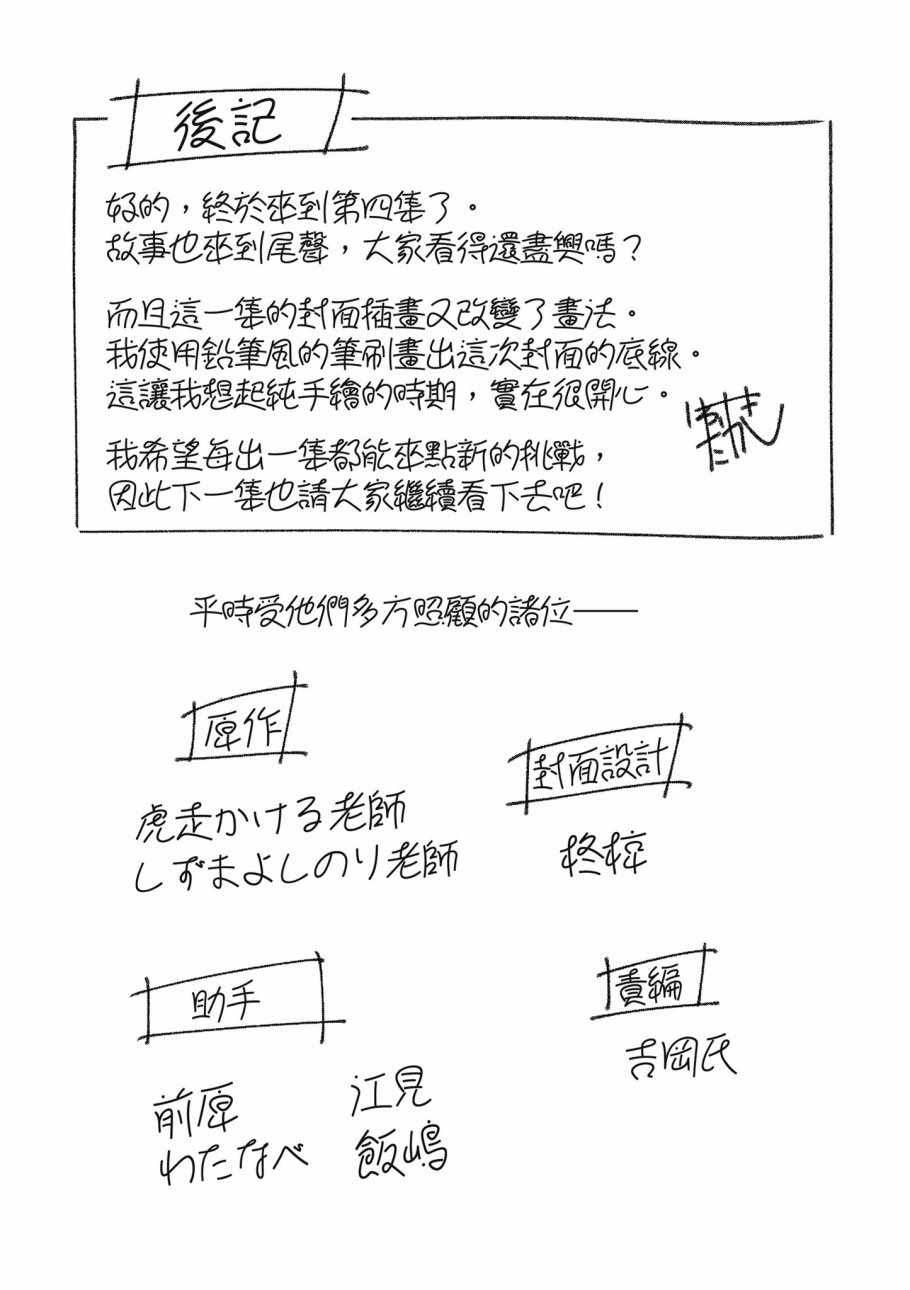 後記
好的，終於來到第四集了。
故事也來到尾聲，大家看得還盡興嗎？
而且這一集的封面插畫又改變了畫法。
我使用鉛筆風的筆刷畫出這次封面的底線。
這讓我想起純手繪的時期，實在很開心。
我希望每出一集都能來點新的挑戰，
因此下一集也請大家繼續看下去吧！
平時受他們多方照顧的諸位——
原作
虎走かける老師
しずまよしのり老師
封面設計
柊椋
助手
前原
わたなべ
江見
飯嶋
責編
吉岡氏